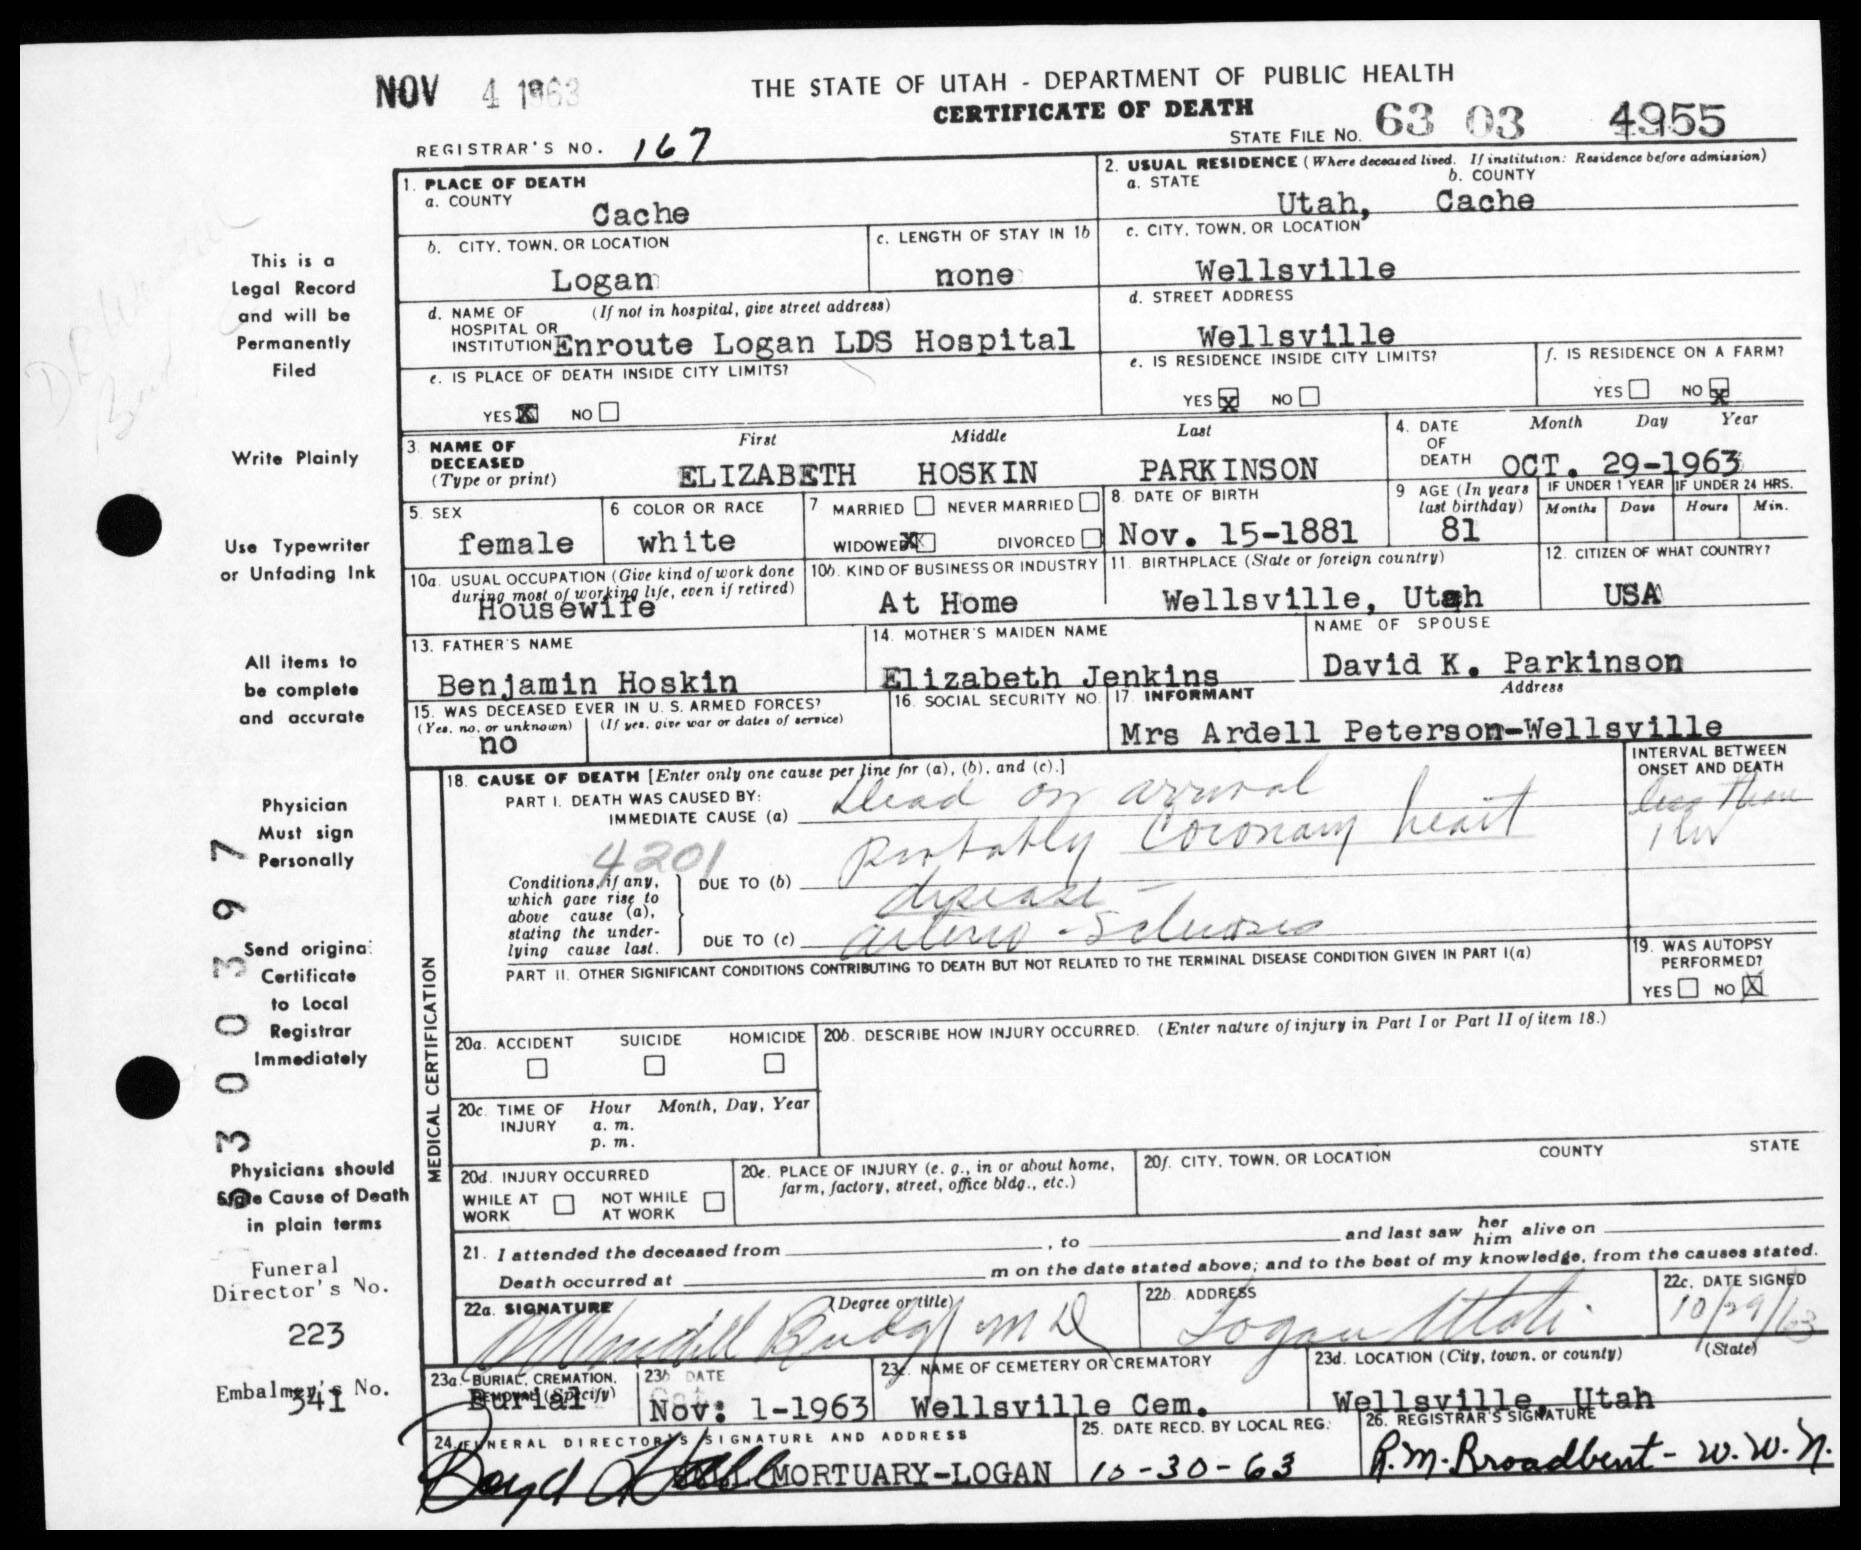 NOV 4 1963
THE STATE OF UTAH - DEPARTMENT OF PUBLIC HEALTH
CERTIFICATE OF DEATH
REGISTRAR'S NO. 167
STATE FILE NO. 63 03 4955
1. PLACE OF DEATH
a. COUNTY
Cache
2. USUAL RESIDENCE (Where deceased lived. If institution: Residence before admission)
a. STATE b. COUNTY
Utah, Cache
b. CITY, TOWN, OR LOCATION
Logan
c. LENGTH OF STAY IN 1b
none
c. CITY, TOWN, OR LOCATION
Wellsville
d. NAME OF (If not in hospital, give street address)
HOSPITAL OR
INSTITUTION Enroute Logan LDS Hospital
d. STREET ADDRESS
Wellsville
e. IS PLACE OF DEATH INSIDE CITY LIMITS?
YES X NO
e. IS RESIDENCE INSIDE CITY LIMITS?
YES X NO
f. IS RESIDENCE ON A FARM?
YES NO X
3. NAME OF DECEASED
(Type or print)
First Middle Last
ELIZABETH HOSKIN PARKINSON
4. DATE OF DEATH
Month Day Year
OCT. 29-1963
5. SEX
female
6 COLOR OR RACE
white
7 MARRIED NEVER MARRIED
WIDOWED X DIVORCED
8. DATE OF BIRTH
Nov. 15-1881
9 AGE (In years
last birthday)
81
IF UNDER 1 YEAR IF UNDER 24 HRS.
Months Days Hours Min.
10a. USUAL OCCUPATION (Give kind of work done
during most of working life, even if retired)
Housewife
10b. KIND OF BUSINESS OR INDUSTRY
At Home
11. BIRTHPLACE (State or foreign country)
Wellsville, Utah
12. CITIZEN OF WHAT COUNTRY?
USA
13. FATHER'S NAME
Benjamin Hoskin
14. MOTHER'S MAIDEN NAME
Elizabeth Jenkins
NAME OF SPOUSE
David K. Parkinson
15. WAS DECEASED EVER IN U. S. ARMED FORCES?
(Yes, no, or unknown) (If yes, give war or dates of service)
no
16. SOCIAL SECURITY NO.
17. INFORMANT Address
Mrs Ardell Peterson-Wellsville
18. CAUSE OF DEATH [Enter only one cause per line for (a), (b), and (c).]
INTERVAL BETWEEN
ONSET AND DEATH
PART I. DEATH WAS CAUSED BY:
IMMEDIATE CAUSE (a) Dead on arrival
less than
1 hr
probably Coronary heart
4201
Conditions, if any,
which gave rise to
above cause (a),
stating the under-
lying cause last.
DUE TO (b)
disease -
DUE TO (c) arterio-sclerosis
PART II. OTHER SIGNIFICANT CONDITIONS CONTRIBUTING TO DEATH BUT NOT RELATED TO THE TERMINAL DISEASE CONDITION GIVEN IN PART I(a)
19. WAS AUTOPSY
PERFORMED?
YES NO X
MEDICAL CERTIFICATION
20a. ACCIDENT SUICIDE HOMICIDE
20b. DESCRIBE HOW INJURY OCCURRED. (Enter nature of injury in Part I or Part II of item 18.)
20c. TIME OF INJURY
Hour Month, Day, Year
a. m.
p. m.
20d. INJURY OCCURRED
WHILE AT WORK
NOT WHILE AT WORK
20e. PLACE OF INJURY (e. g., in or about home,
farm, factory, street, office bldg., etc.)
20f. CITY, TOWN, OR LOCATION COUNTY STATE
21. I attended the deceased from , to and last saw her him alive on
Death occurred at m on the date stated above; and to the best of my knowledge, from the causes stated.
22a. SIGNATURE (Degree or title)
Budge M D
22b. ADDRESS
Logan Utah.
22c. DATE SIGNED
10/29/63
23a. BURIAL, CREMATION,
REMOVAL (Specify)
Burial
23b DATE
Nov: 1-1963
23c. NAME OF CEMETERY OR CREMATORY
Wellsville Cem.
23d. LOCATION (City, town, or county) (State)
Wellsville, Utah
24. FUNERAL DIRECTOR'S SIGNATURE AND ADDRESS
Boyd Hall MORTUARY-LOGAN
25. DATE RECD. BY LOCAL REG:
10-30-63
26. REGISTRAR'S SIGNATURE
R.M. Broadbent - W.W.N.
This is a
Legal Record
and will be
Permanently
Filed
Write Plainly
Use Typewriter
or Unfading Ink
All items to
be complete
and accurate
Physician
Must sign
Personally
Send original
Certificate
to Local
Registrar
Immediately
Physicians should
State Cause of Death
in plain terms
Funeral
Director's No.
223
Embalmer's No.
341